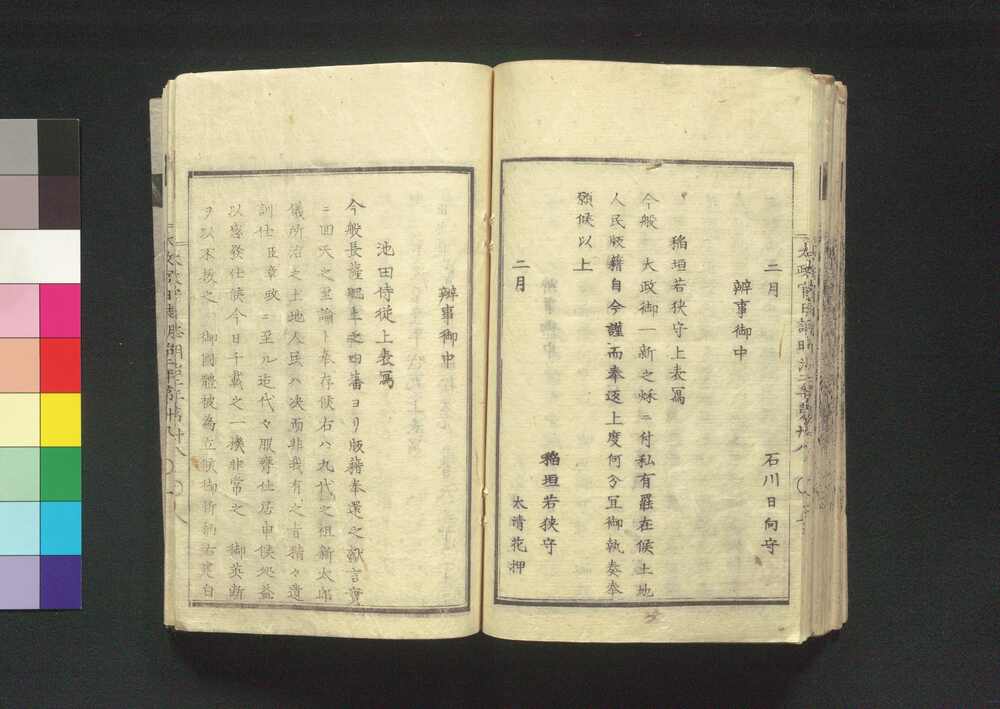 二月
石川日向守
辨事御中
稲垣若狭守上表寫
今般 大政御一新之秋ニ付私有罷在候土地
人民版籍自今謹而奉返上度何分宜御執奏奉
願候以上
二月
稲垣若狭守
太清花押
辨事御中
池田侍従上表寫
今般長薩肥土之四藩ヨリ版籍奉還之献言實
ニ回天之至論ト奉存候右ハ九代之祖新太郎
儀所治之土地人民ハ决而非我有之旨精々遺
訓仕 臣章政 ニ至ル迄代々服膺仕居申候処益
以感發仕候今日千載之一機非常之 御英断
ヲ以不抜之 御國體被為立候御折柄